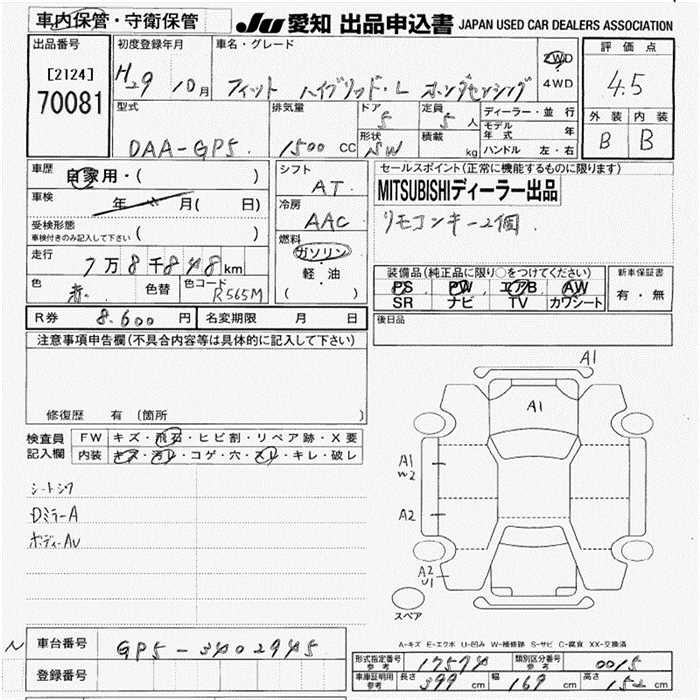 車内保管・守衛保管
JU 愛知 出品申込書 JAPAN USED CAR DEALERS ASSOCIATION
出品番号
[2124]
70081
初度登録年月
H29 10月
車名・グレード
フィット ハイブリッド・L ホンダセンシング
2WD
4WD
評価点
4.5
型式
DAA-GP5
排気量
1500 CC
ドア
5
形状
SW
定員
5 人
積載
kg
ディーラー・並行
モデル年式 年
ハンドル 左・右
外装 内装
B B
車歴
自家用・( )
車検
年 月( 日)
受検形態
車検付きのみ記入して下さい ( )
走行
7万8千848km
色
赤
色替
色コード
R565M
シフト
AT
冷房
AAC
燃料
ガソリン
軽・油
( )
セールスポイント(正常に機能するものに限ります)
MITSUBISHIディーラー出品
リモコンキー2個
装備品(純正品に限り○をつけてください)
PS PW エアB AW
SR ナビ TV カワシート
新車保証書
有・無
R券 8.600 円
名変期限 月 日
後日品
注意事項申告欄(不具合内容等は具体的に記入して下さい)
修復歴 有(箇所 )
検査員
記入欄
FW キズ・飛石・ヒビ割・リペア跡・X要
内装 キズ・汚レ・コゲ・穴・スレ・キレ・破レ
シートシワ
DミラーA
ボディーAU
A1
A1
A1
W2
A2
A2
U1
スペア
A-キズ E-エクボ U-凹み W-補修跡 S-サビ C-腐食 XX-交換済
N 車台番号 GP5-3402945
登録番号
形式指定番号
参考
17574
類別区分番号
参考
0015
車庫証明用
参考
長さ 399 cm 幅 169 cm 高さ 152 cm